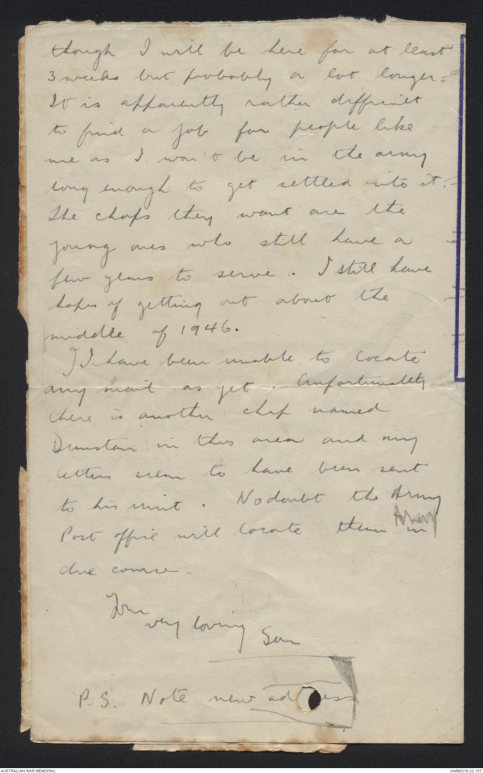 though I will be here for at least
3 weeks but probably a lot longer.
It is apparently rather difficult
to find a job for people like
me as I won't be in the army
long enough to get settled into it.
The chaps they want are the
young ones who still have a
few years to serve. I still have
hopes of getting out about the
middle of 1946.
I have been unable to locate
any mail as yet. Unfortunately
there is another chap named
Dunstan in this area and my
letters seem to have been sent
to his unit. No doubt the Army
Army
Post office will locate them in
due course.
Your
very loving Son
P.S. Note new address
AUSTRALIAN WAR MEMORIAL